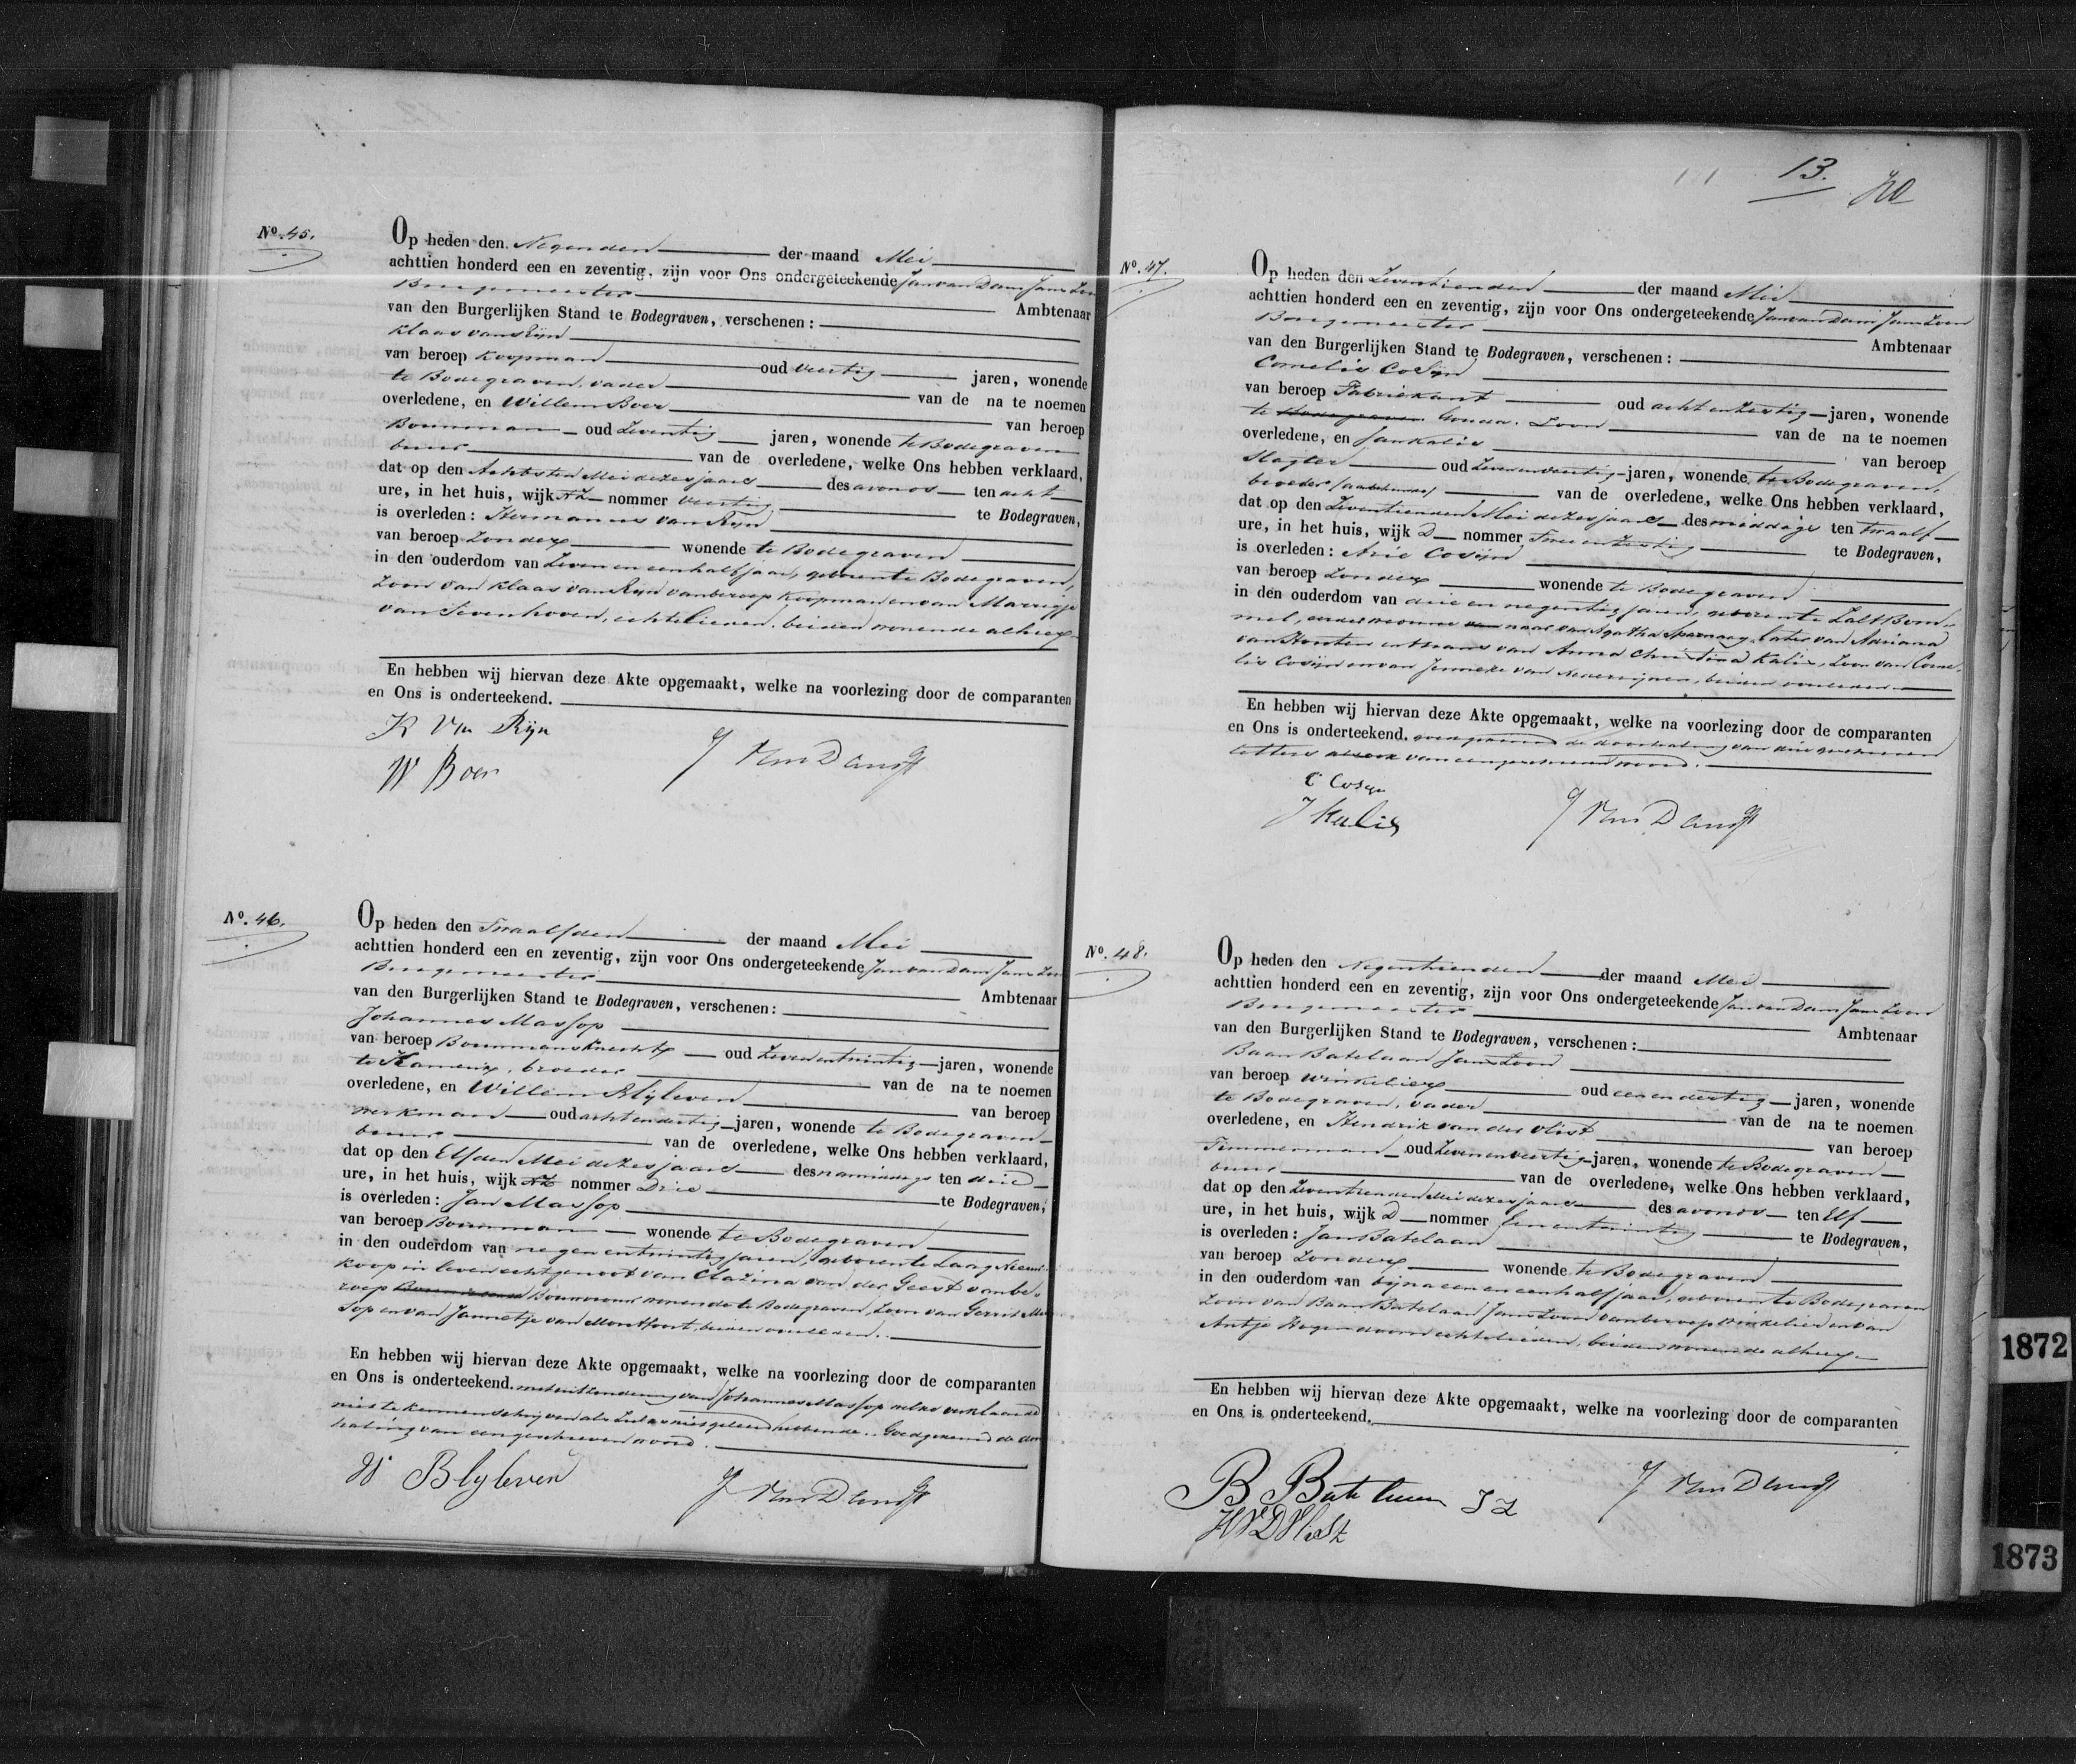 No. 45.
Op heden den Negenden der maand Mei
achttien honderd een en zeventig, zijn voor Ons ondergeteekende Jan van Dam Jans Zoon
Burgemeester Ambtenaar
van den Burgerlijken Stand te Bodegraven, verschenen:
Klaas van Rijn
van beroep Koopman oud veertig jaren, wonende
te Bodegraven, vader van de na te noemen
overledene, en Willem Boer van beroep
Bouwman oud Zeventig jaren, wonende te Bodegraven
buur van de overledene, welke Ons hebben verklaard,
dat op den Achtsten Mei dezes jaars des avonds ten acht
ure, in het huis, wijk nommer veertig te Bodegraven,
is overleden: Hermanus van Rijn
van beroep Zonder wonende te Bodegraven
in den ouderdom van Zeven en een half jaar, geboren te Bodegraven,
Zoon van Klaas van Rijn van beroep Koopman en van Marrigje
van Sevenhoven, echtelieden, beiden wonende alhier
En hebben wij hiervan deze Akte opgemaakt, welke na voorlezing door de comparanten
en Ons is onderteekend.
K van Rijn
W Boer
J van Dam JZ
No. 46.
Op heden den Twaalfden der maand Mei
achttien honderd een en zeventig, zijn voor Ons ondergeteekende Jan van Dam Jans Zoon
Burgemeester Ambtenaar
van den Burgerlijken Stand te Bodegraven, verschenen:
Johannes Massop
van beroep Bouwmansknecht oud Zeven en twintig jaren, wonende
te Kamerik, broeder van de na te noemen
overledene, en Willem Blijleven van beroep
werkman oud acht en dertig jaren, wonende te Bodegraven
buur van de overledene, welke Ons hebben verklaard,
dat op den Elfden Mei dezes jaars des namiddags ten drie
ure, in het huis, wijk nommer Drie te Bodegraven,
is overleden: Jan Massop
van beroep Bouwman wonende te Bodegraven
in den ouderdom van negen en twintig jaren, geboren te Laag Nieuw-
koop in leven echtgenoot van Clazina van der Geest van be-
roep Bouwvrouw wonende te Bodegraven, Zoon van Gerrit Mas
sop en van Jannetje van Montfoort, beiden overleden.
En hebben wij hiervan deze Akte opgemaakt, welke na voorlezing door de comparanten
en Ons is onderteekend. met uitzondering van Johannes Massop welke verklaarde
niet te kunnen schrijven als Zulks niet geleerd hebbende. Goedgekeurd de door
haling van een geschreven woord.
W Blyleven
J van Dam JZ
13.
No. 47.
Op heden den Zeventienden der maand Mei
achttien honderd een en zeventig, zijn voor Ons ondergeteekende Jan van Dam Jans Zoon
Burgemeester Ambtenaar
van den Burgerlijken Stand te Bodegraven, verschenen:
Cornelis Cosijn
van beroep Fabriekant oud acht en Zestig jaren, wonende
te Bodegraven Gouda. Zoon van de na te noemen
overledene, en Jan Kalis van beroep
Slagter oud Zeven en veertig jaren, wonende te Bodegraven,
broeder (aanbehuwd) van de overledene, welke Ons hebben verklaard,
dat op den Zeventienden Mei dezes jaars des middags ten twaalf
ure, in het huis, wijk D nommer Twee en Zestig te Bodegraven,
is overleden: Arie Cosijn
van beroep Zonder wonende te Bodegraven
in den ouderdom van drie en negentig jaren, geboren te Zalt Bom-
mel, eerder weduwenaar van Agatha Sparnaay, later van Adriana
van Houten en thans van Anna Christina Kalis, Zoon van Corne-
lis Cosijn en van Jenneke van Nederrijnen, beiden overleden
En hebben wij hiervan deze Akte opgemaakt, welke na voorlezing door de comparanten
en Ons is onderteekend. goedgekeurd de doorhaling van drie geschreven
letters alsook van een geschreven woord.
C Cosyn
J Kalis
J van Dam JZ
No. 48.
Op heden den Negentienden der maand Mei
achttien honderd een en zeventig, zijn voor Ons ondergeteekende Jan van Dam Jans Zoon
Burgemeester Ambtenaar
van den Burgerlijken Stand te Bodegraven, verschenen:
Baan Batelaan Jans Zoon
van beroep Winkelier oud een en dertig jaren, wonende
te Bodegraven, vader van de na te noemen
overledene, en Hendrik van der Vlist van beroep
Timmerman oud Zeven en veertig jaren, wonende te Bodegraven
buur van de overledene, welke Ons hebben verklaard,
dat op den Zeventienden Mei dezes jaars des avonds ten Elf
ure, in het huis, wijk D nommer Een en twintig te Bodegraven,
is overleden: Jan Batelaan
van beroep Zonder wonende te Bodegraven
in den ouderdom van bijna een en een half jaar, geboren te Bodegraven
Zoon van Baan Batelaan Jans Zoon van beroep Winkelier en van
Antje Hogendoorn echtelieden, beiden wonende alhier
En hebben wij hiervan deze Akte opgemaakt, welke na voorlezing door de comparanten
en Ons is onderteekend.
B Batelaan JZ
HVD Vlist
J van Dam JZ
1872
1873